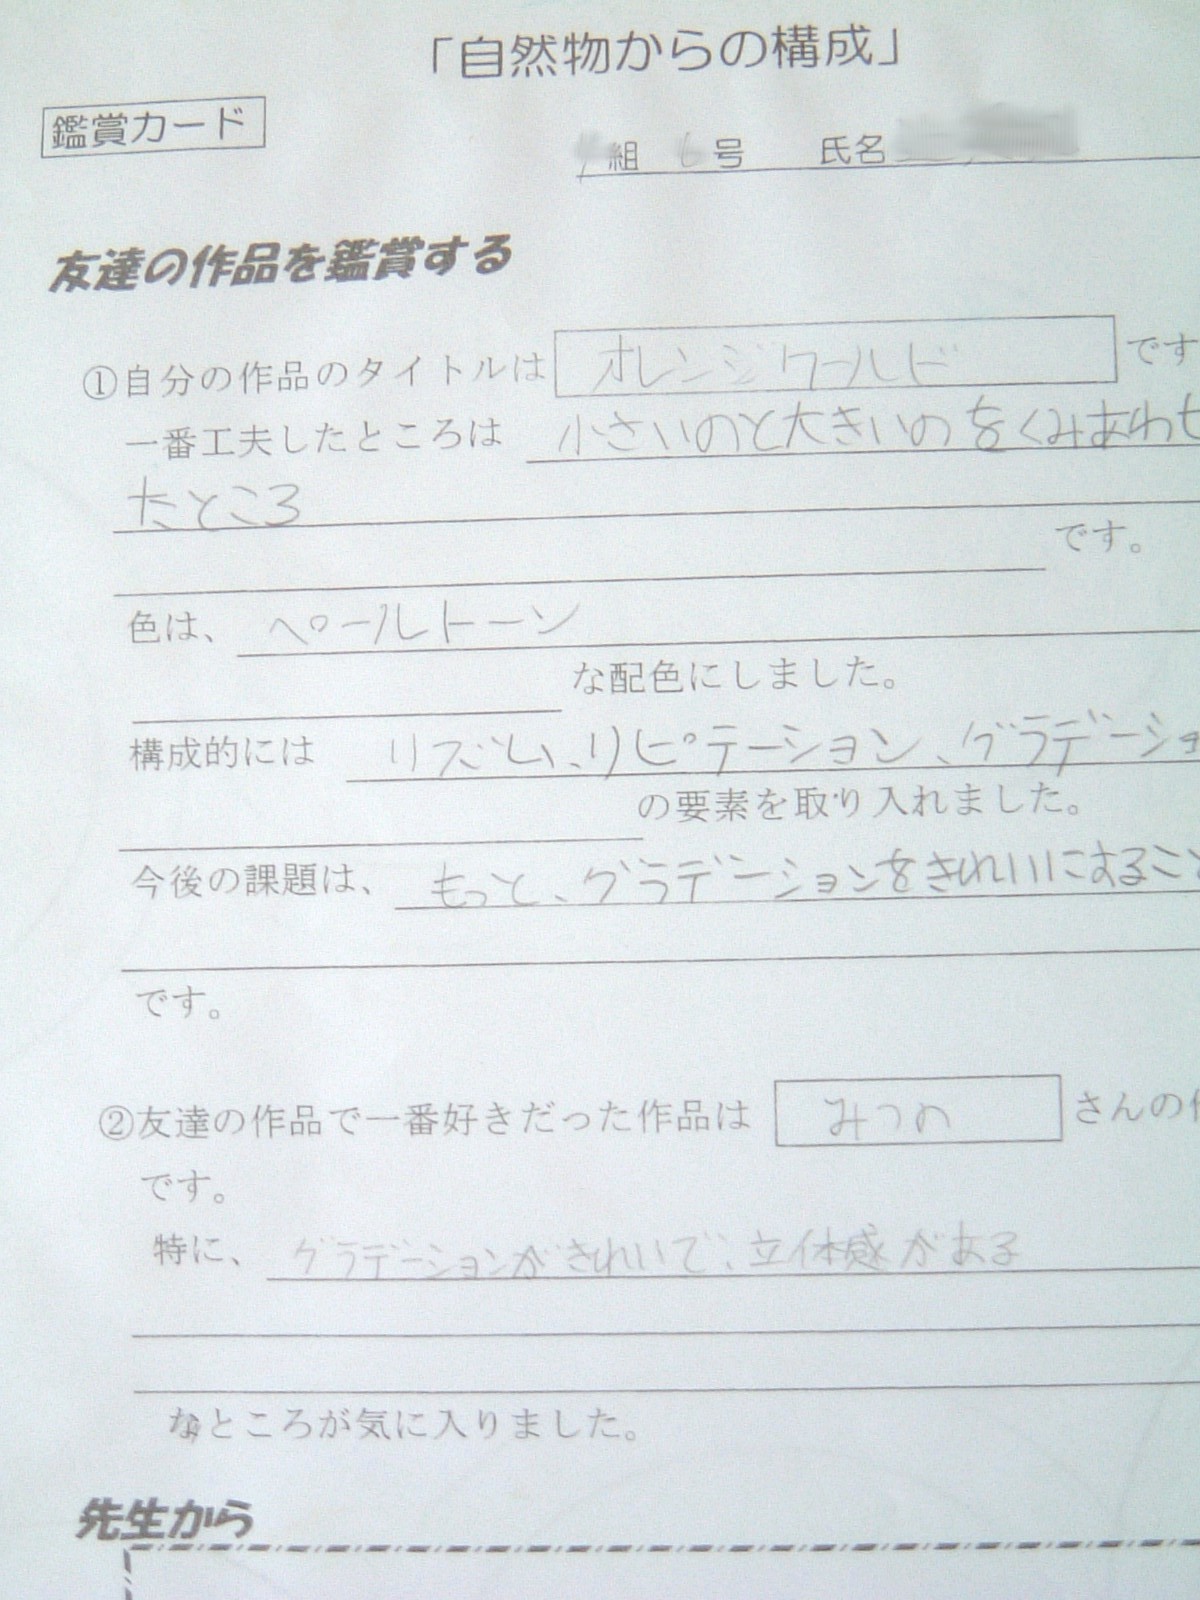 「自然物からの構成」
鑑賞カード
組 6号 氏名
友達の作品を鑑賞する
①自分の作品のタイトルは オレンジワールド です
一番工夫したところは 小さいのと大きいのをくみあわせ
たところ
です。
色は、ペールトーン
な配色にしました。
構成的には リズム、リピテーション、グラデーショ
の要素を取り入れました。
今後の課題は、もっと、グラデーションをきれいにすること
です。
②友達の作品で一番好きだった作品は みつの さんの作
です。
特に、グラデーションがきれいで、立体感がある
なところが気に入りました。
先生から